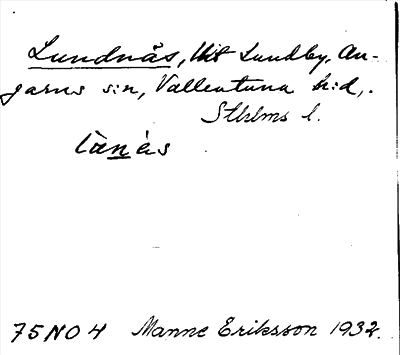 Lundnäs, till Lundby, An-
garns s:n, Vallentuna h:d,.
Sthlms l.
75NO4 Manne Eriksson 1932.